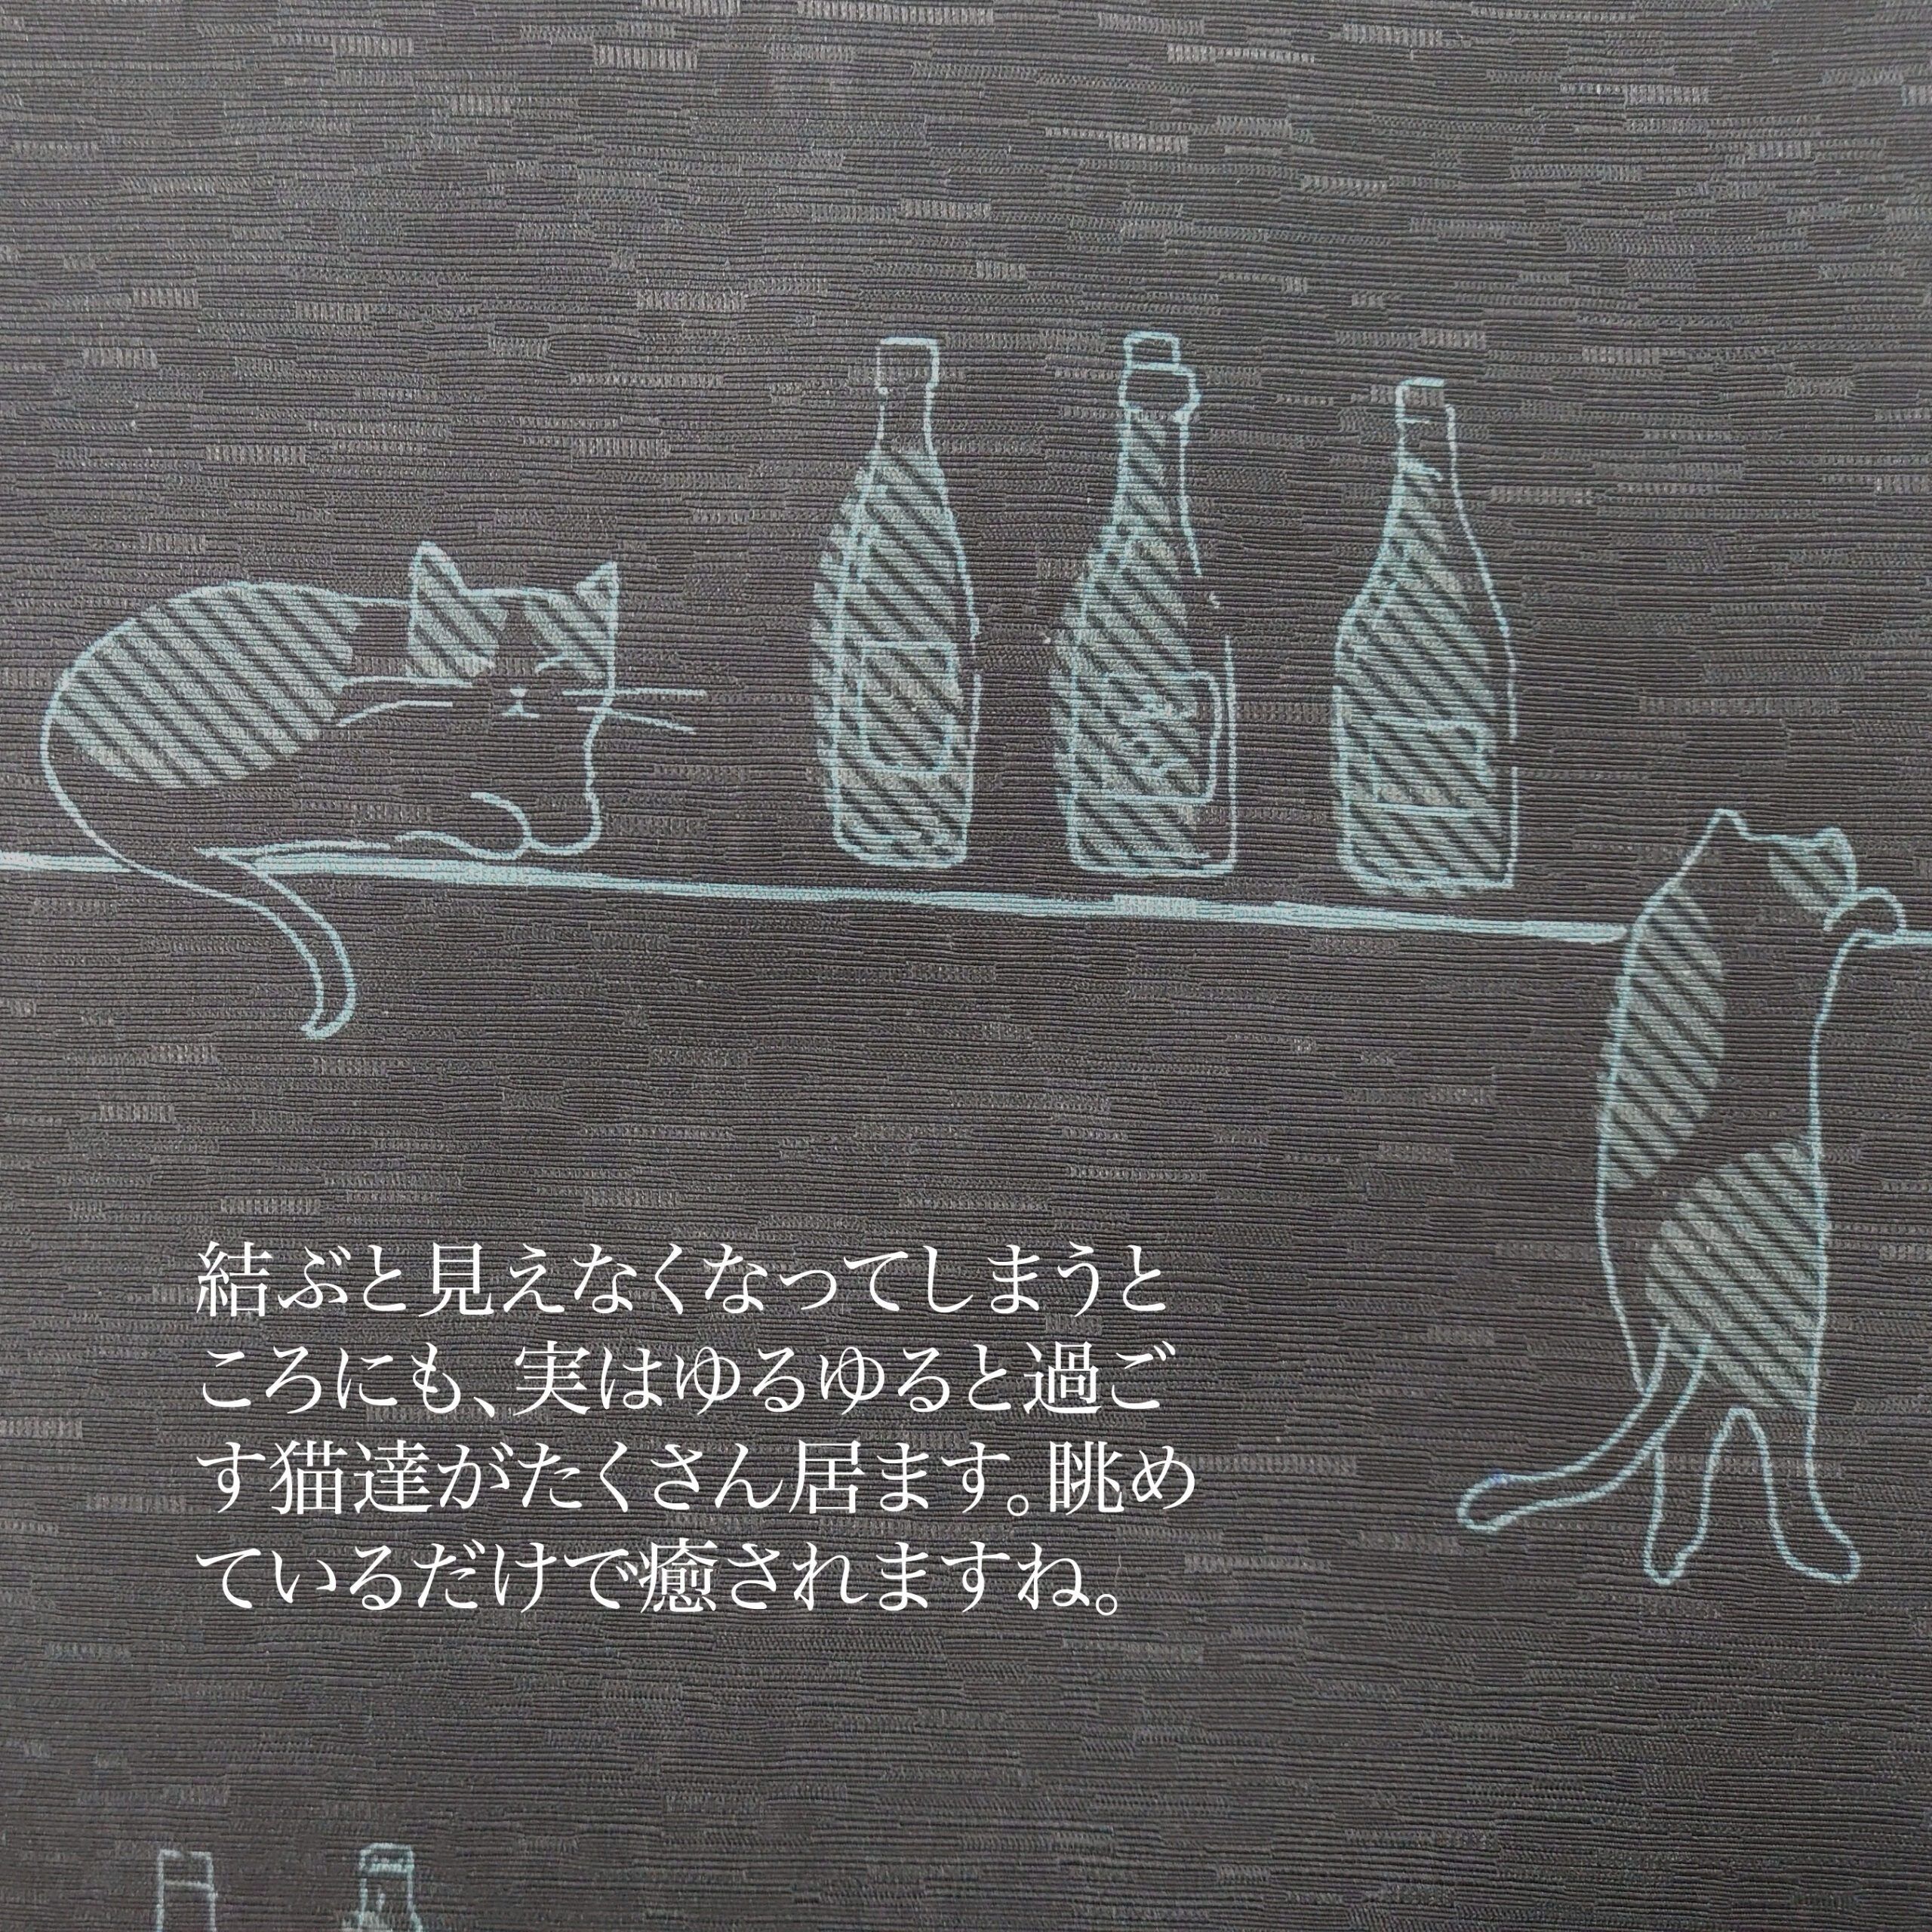 結ぶと見えなくなってしまうと
ころにも、実はゆるゆると過ご
す猫達がたくさん居ます。眺め
ているだけで癒されますね。